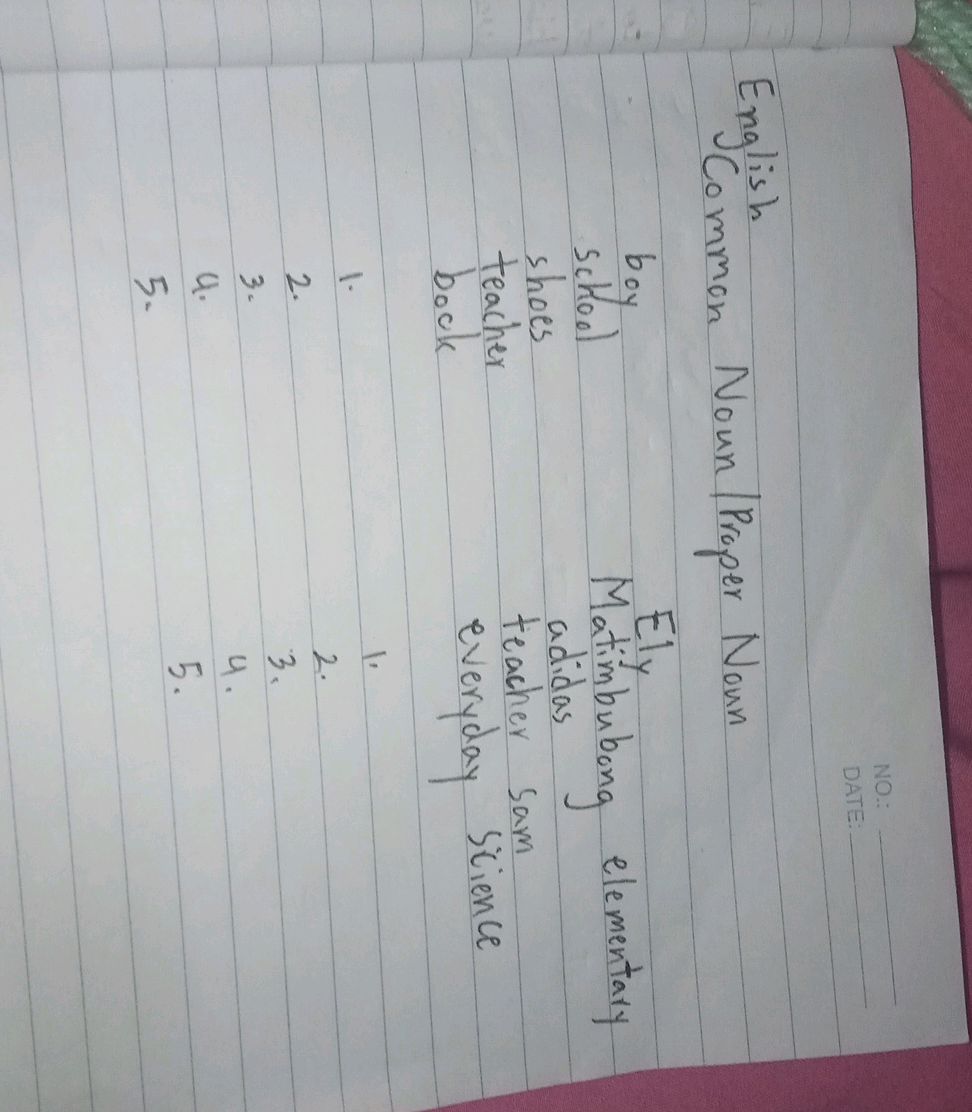 NO.:
DATE:
English
Common Noun / Proper Noun
boy Ely
school Matimbubong elementary
shoes adidas
teacher teacher sam
bock everyday science
1. 1.
2. 2.
3. 3.
4. 4.
5. 5.